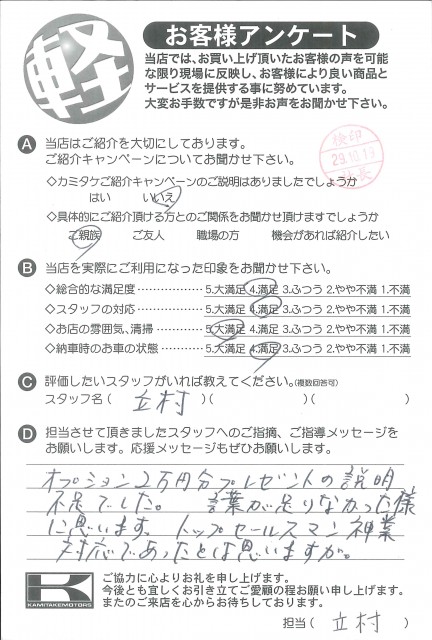 軽
お客様アンケート
当店では、お買い上げ頂いたお客様の声を可能
な限り現場に反映し、お客様により良い商品と
サービスを提供する事に努めています。
大変お手数ですが是非お声をお聞かせ下さい。
A 当店はご紹介を大切にしております。
ご紹介キャンペーンについてお聞かせ下さい。
検印
29.10.19
社長
◇カミタケご紹介キャンペーンのご説明はありましたでしょうか
はい いいえ
◇具体的にご紹介頂ける方とのご関係をお聞かせ頂けますでしょうか
ご親族 ご友人 職場の方 機会があれば紹介したい
B 当店を実際にご利用になった印象をお聞かせ下さい。
◇総合的な満足度 ················ 5.大満足 4.満足 3.ふつう 2.やや不満 1.不満
◇スタッフの対応 ················ 5.大満足 4.満足 3.ふつう 2.やや不満 1.不満
◇お店の雰囲気、清掃 ············ 5.大満足 4.満足 3.ふつう 2.やや不満 1.不満
◇納車時のお車の状態 ············ 5.大満足 4.満足 3.ふつう 2.やや不満 1.不満
C 評価したいスタッフがいれば教えてください。(複数回答可)
スタッフ名( 立村 )( )( )
D 担当させて頂きましたスタッフへのご指摘、ご指導メッセージを
お願いします。応援メッセージもぜひお願いします。
オプション2万円分プレゼントの説明
不足でした。 言葉が足りなかった様
に思います。 トップセールスマン神業
対応であったとは思いますが。
K
KAMITAKEMOTORS
ご協力に心よりお礼を申し上げます。
今後とも宜しくお引き立てご愛顧の程お願い申し上げます。
またのご来店を心からお待ちしております。
担当( 立村 )